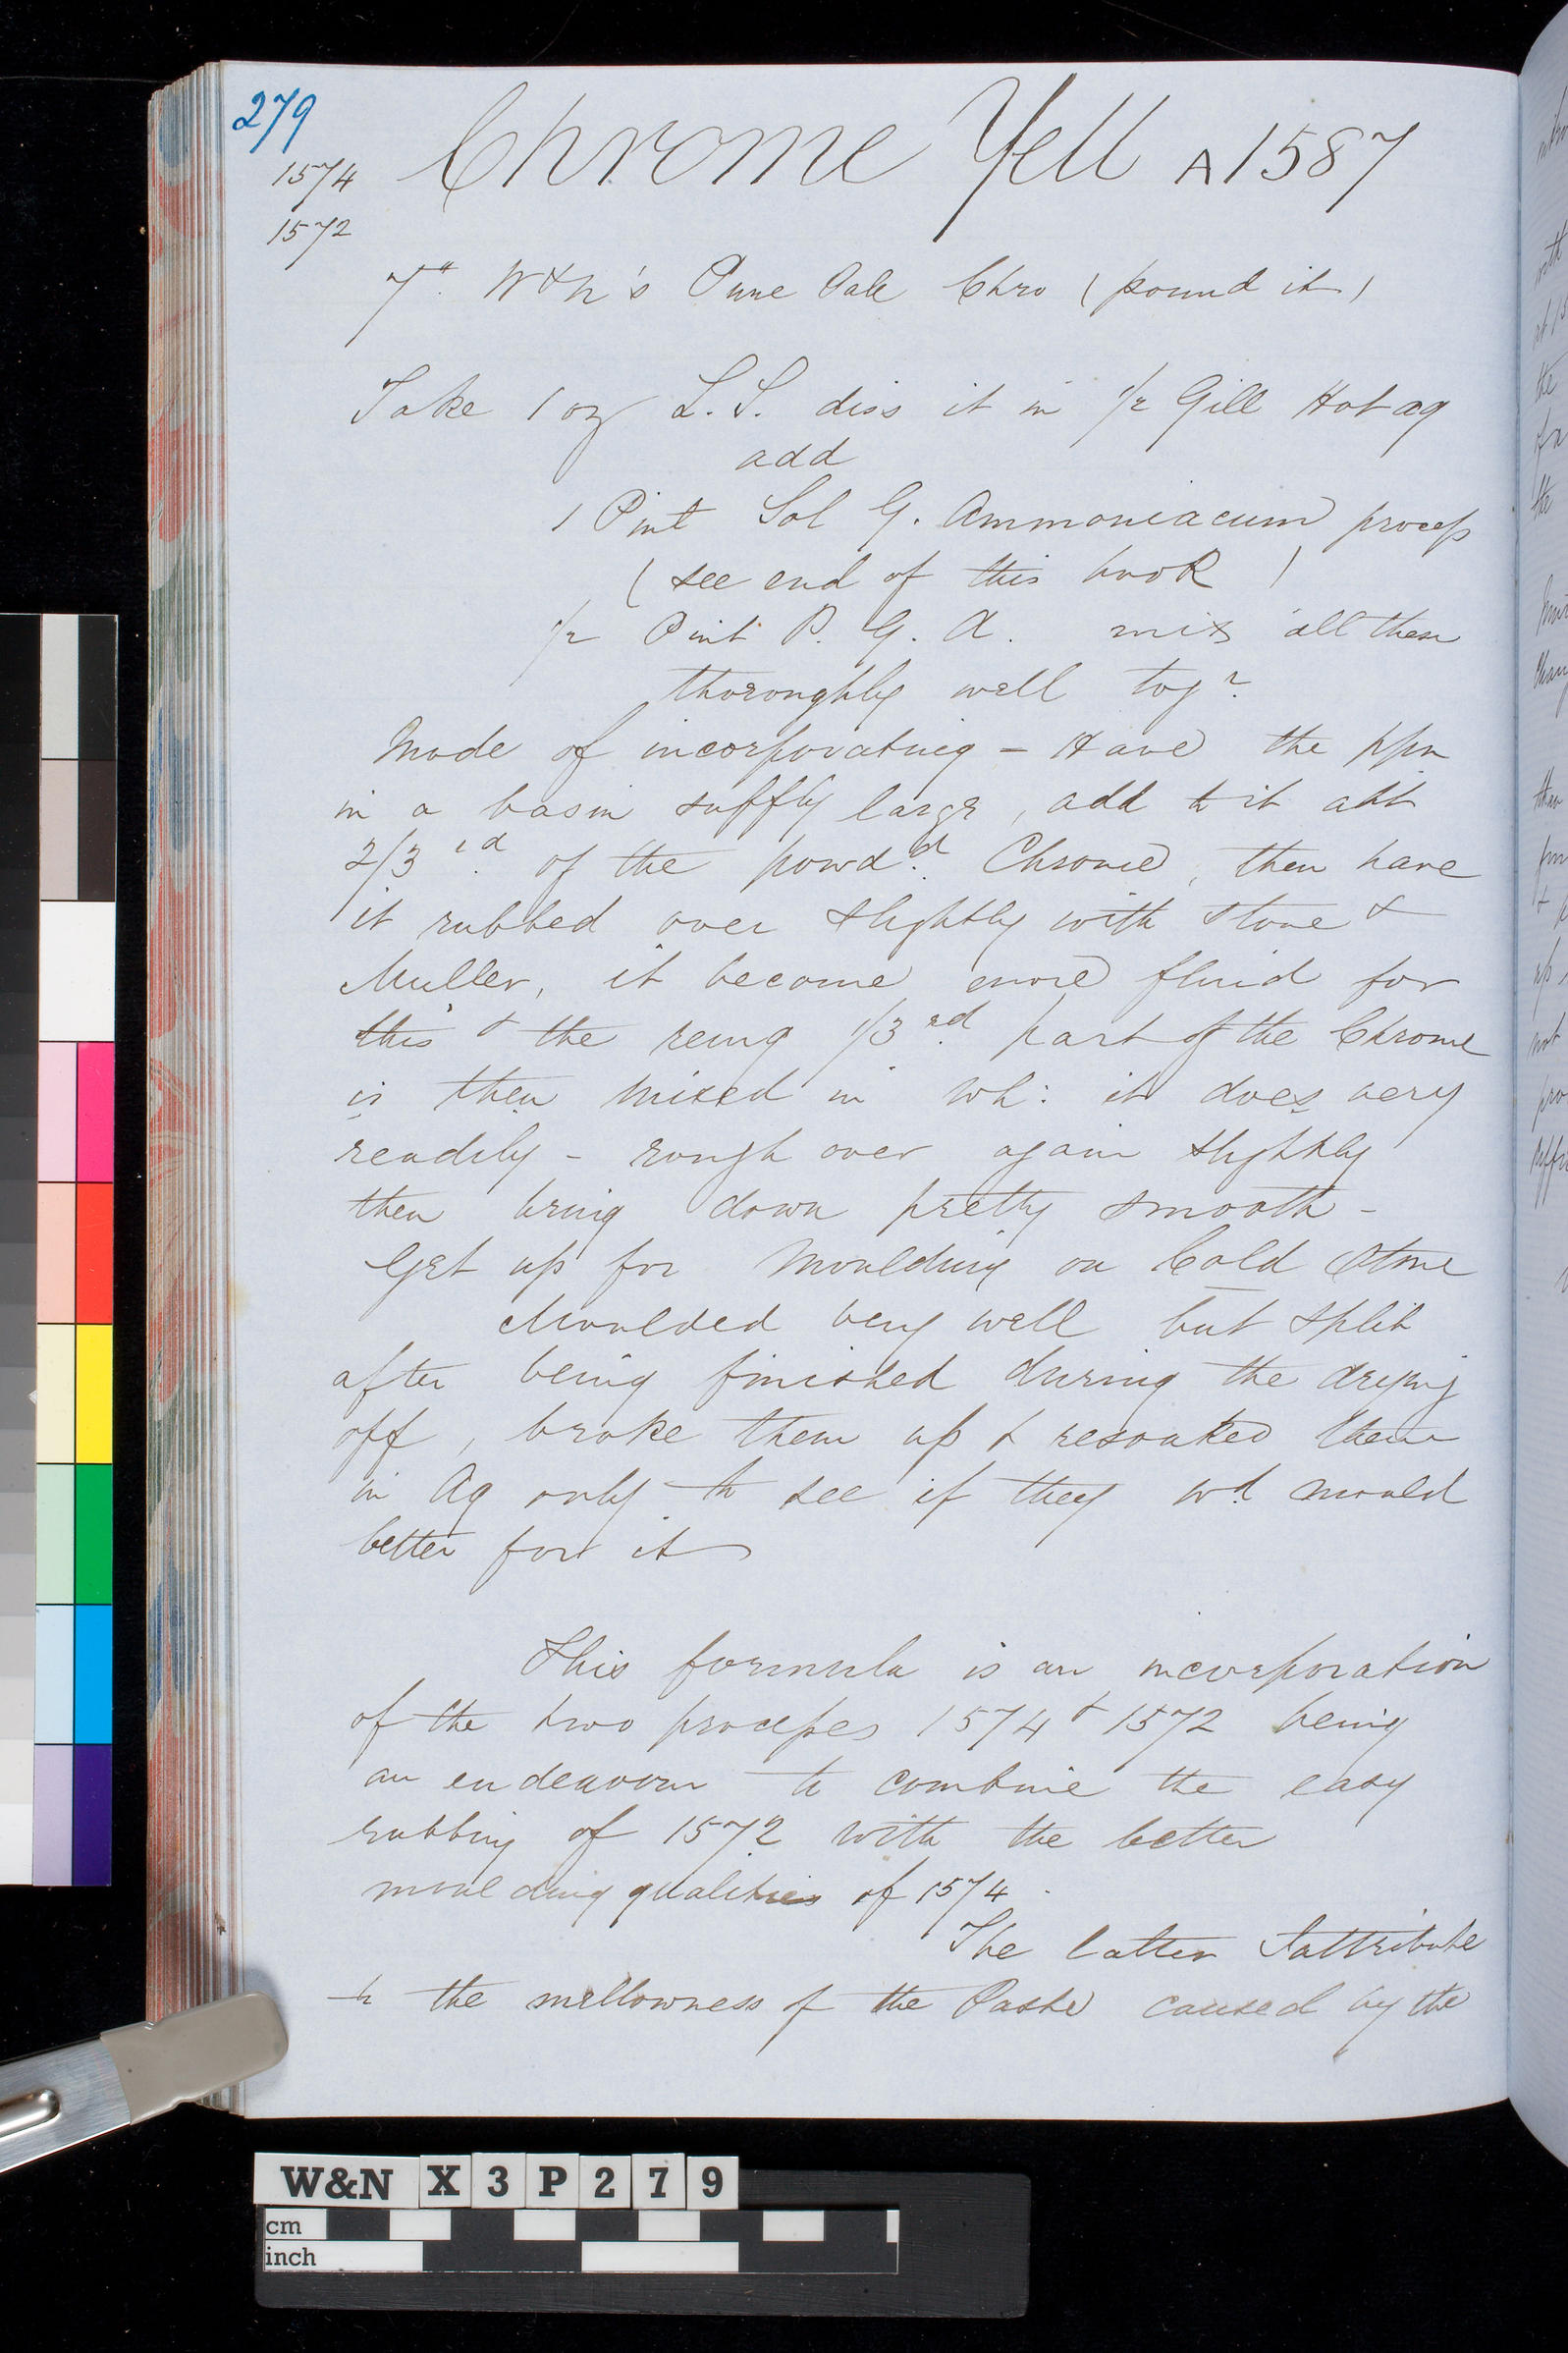 279
Chrome Yell A 1587
1574
1572
7" W&N's Pure Pale Chro (pound it)
Take 1 oz L.S. diss it in 1/2 Gill Hot aq
add
1 Pint Sol G. Ammoniacum process
(see end of this book)
1/2 Pint P. G. A. mix all these
thoroughly well togr.
Mode of incorporating - Have the ppn
in a basin suffly large, add to it abt
2/3rd. of the powdd. Chrome, then have
it rubbed over slightly with Stone &
Muller, it become more fluid for
this & the reung 1/3rd. part of the Chrome
is then mixed in wh: it does very
readily - rough over again slightly
then bring down pretty smooth -
Get up for Moulding on Cold Stone
Moulded very well but split
after being finished during the drying
off, broke them up & resoaked them
in Aq only to see if they wd mould
better for it
This formula is an incorporation
of the two processes 1574 & 1572 being
an endeavour to combine the easy
rubbing of 1572 with the better
moulding qualities of 1574.
The latter I attribute
to the mellowness of the Paste caused by the
W&N X 3 P 2 7 9
cm
inch